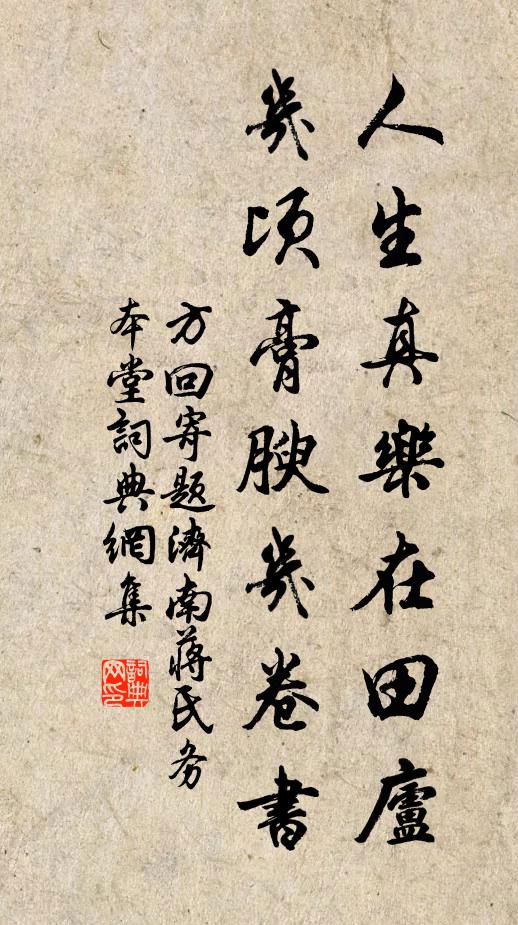 人生真樂在田廬
幾頃膏腴幾卷書
方回寄題濟南蔣氏务
本堂詞典網集
詞典网印